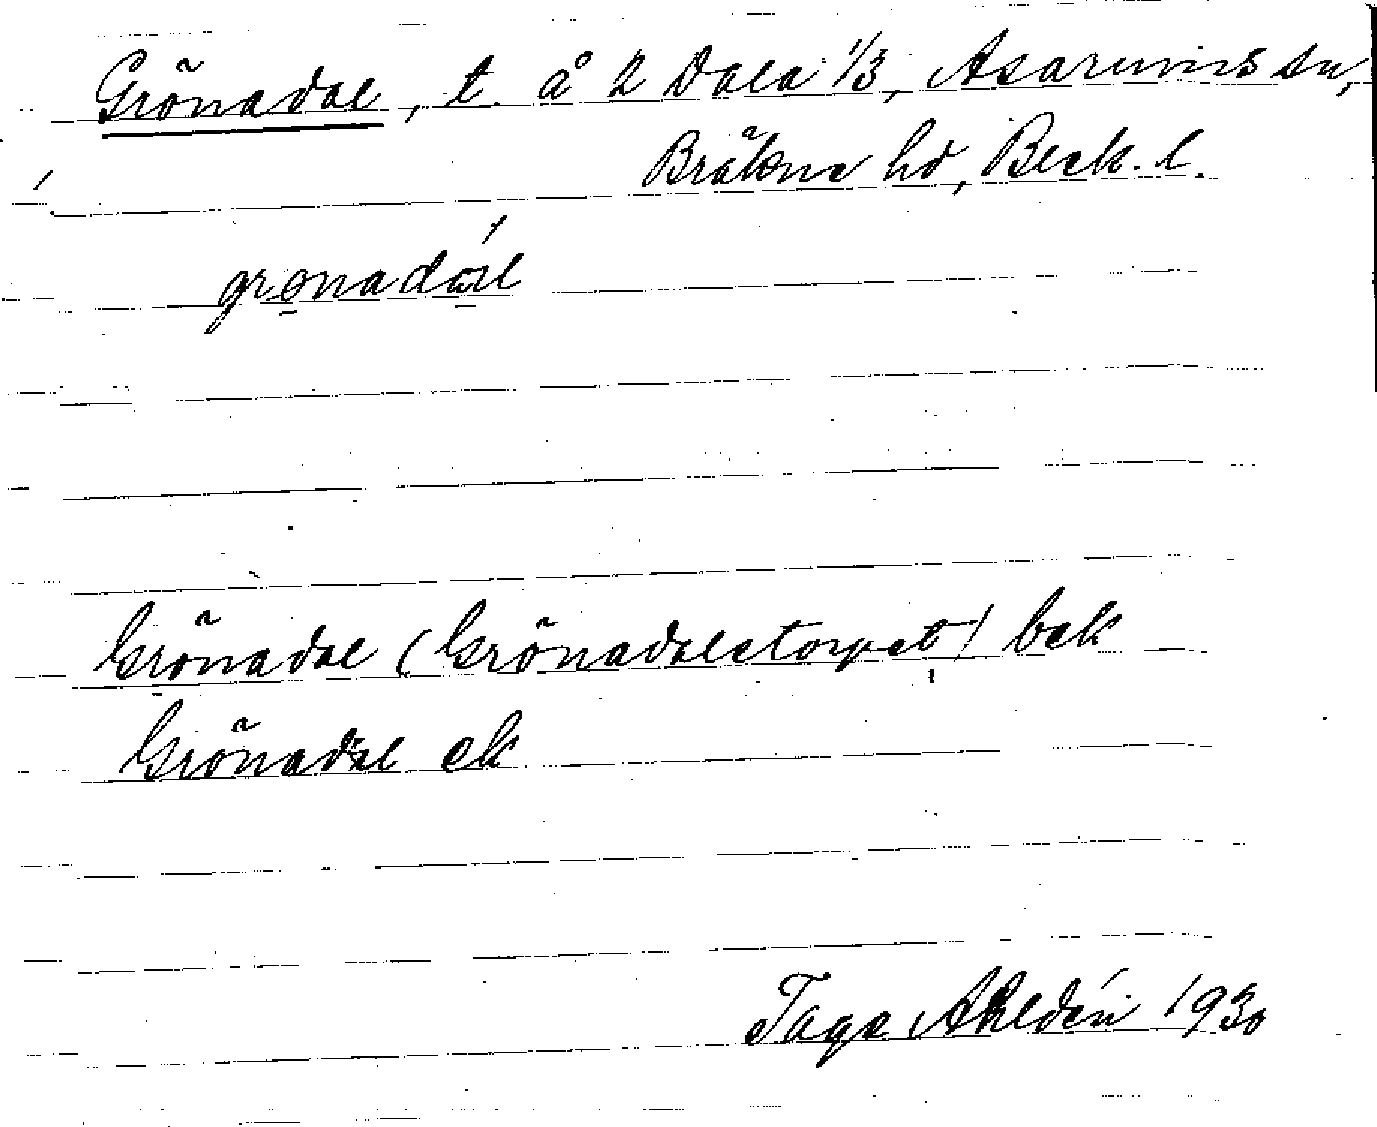 Grönadal, t. å 2 Dala 1/3, Asarums sn,
Bräkne hd, Blek. l.
gronadál
Grönadal (Grönadalstorpet) bek
Grönadal ek
Tage Ahldén 1930